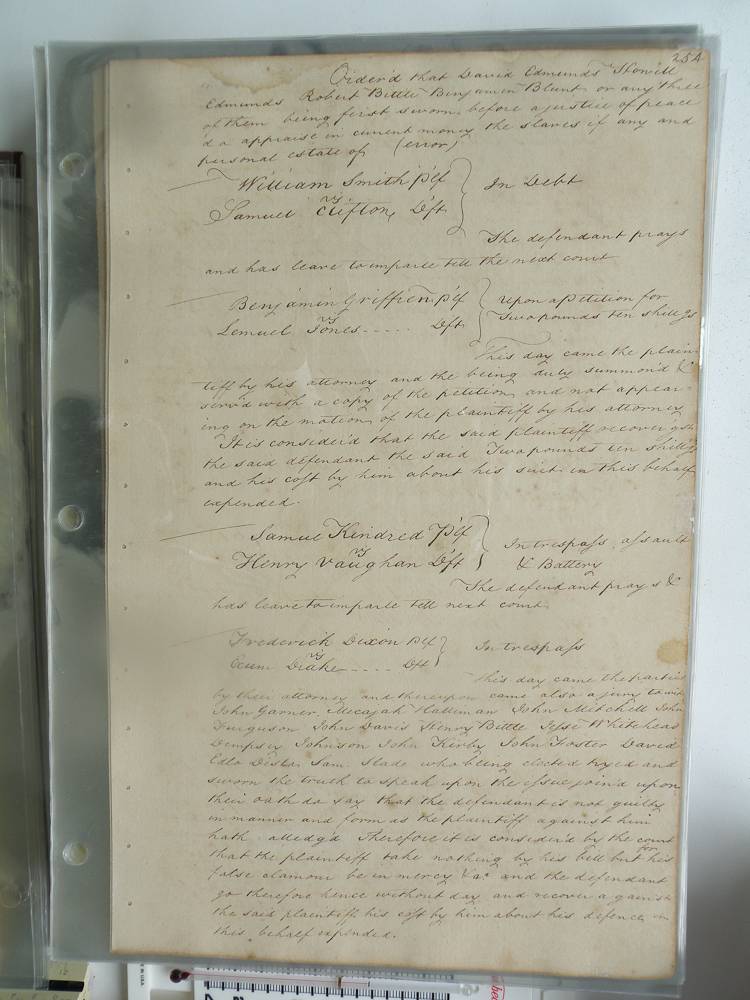 254
Order'd that David Edmunds Howell
Edmunds Robert Bittle Benjamin Blunt or any three
of them being first sworn before a justice of peace
d'o appraise in current money the slaves if any and
personal estate of (error)
William Smith Plf
vs
Samuel Clifton, Dft
In Debt
The defendant prays
and has leave to imparle till the next court
Benjamin Griffien plf
vs
Lemuel Jones ..... Dft
Upon a Petition for
Two pounds ten shillgs
This day came the plain
tiff by his attorney and the being duly summon'd &
serv'd with a copy of the petition and not appear-
ing on the motion of the plaintiff by his attorney
It is consider'd that the said plaintiff recover agst
the said defendant the said Two pounds ten shillgs
and his cost by him about his suit in this behalf
expended.
Samuel Kindred Plf
vs
Henry Vaughan Dft
In trespass, assault
& Battery
The defendant prays &
has leave to imparle till next court
Frederick Dixon Plf
vs
Exum Drake ..... Dft
In trespass
This day came the parties
by their attorney and thereupon came also a jury to wit
John Garner, Mecajah Halleman John Mitchell John
Furguson John Davis Henry Bittle Jesse Whitehead
Dempsey Johnson John Kirby John Foster David
Edlo Sam. Slade who being elected tryed and
sworn the truth to speak upon the issue join'd upon
their oath do say that the defendant is not guilty
in manner and form as the plaintiff against him
hath alledg'd Therefore it is consider'd by the court
that the plaintiff take nothing by his bill but for his
false clamour be in mercy &ca and the defendant
go therefore hence without day and recover against
the said plaintiff his cost by him about his defence in
this behalf expended.